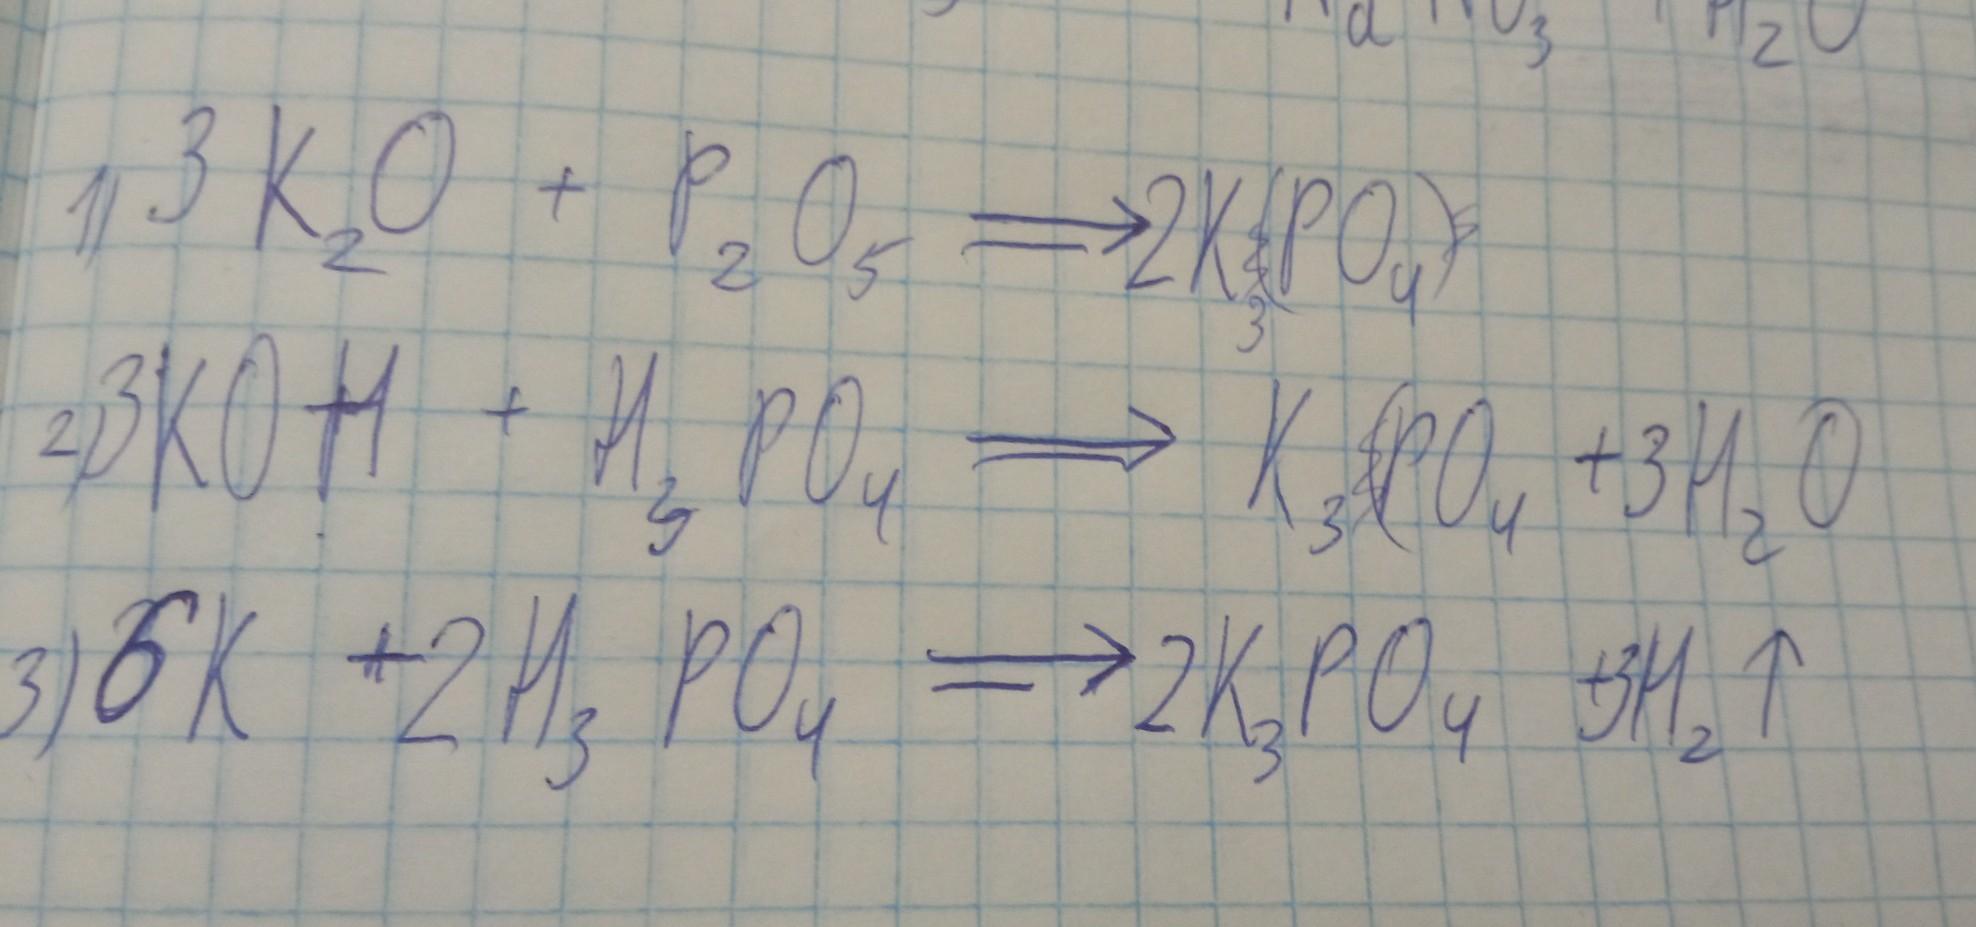 NaNO₃ + H₂O
1) 3K₂O + P₂O₅ ⟹ 2K₃(PO₄)
2) 3KOH + H₃PO₄ ⟹ K₃PO₄ + 3H₂O
3) 6K + 2H₃PO₄ ⟹ 2K₃PO₄ + 3H₂↑